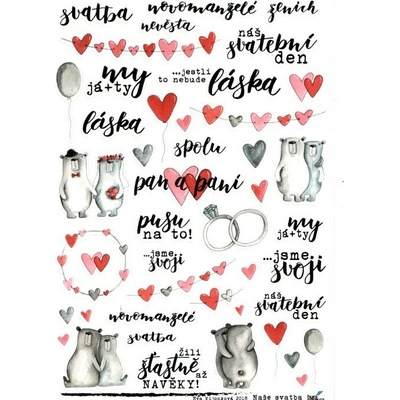 svatba novomanželé ženich
nevěsta
náš
svatební
den
my
já+ty
...jestli
to nebude
láska
láska
spolu
pan a paní
pusu
na to!
my
já+ty
...jsme
svoji
...jsme
svoji
náš
svatební
den
novomanželé
svatba
žili
šťastně
až
NAVĚKY!
2018 Naše svatba